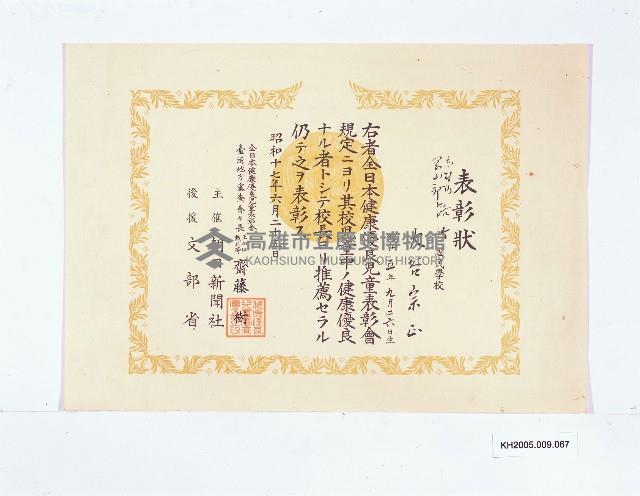 表彰状
國民學校
宗正
年九月二六日生
右者全日本健康優良兒童表彰會
規定ニヨリ其校
ノ健康優良
ナル者トシテ校長ヨリ推薦セラル
仍テ之ヲ表彰ス
昭和十七年六月二十
日
全日本健康優良兒童表彰會
臺灣地方審査會々長
齋藤
樹
主催
新聞社
後援文部省
高雄市立歷史博物館
KAOHSIUNG MUSEUM OF HISTORY
KH2005.009.067